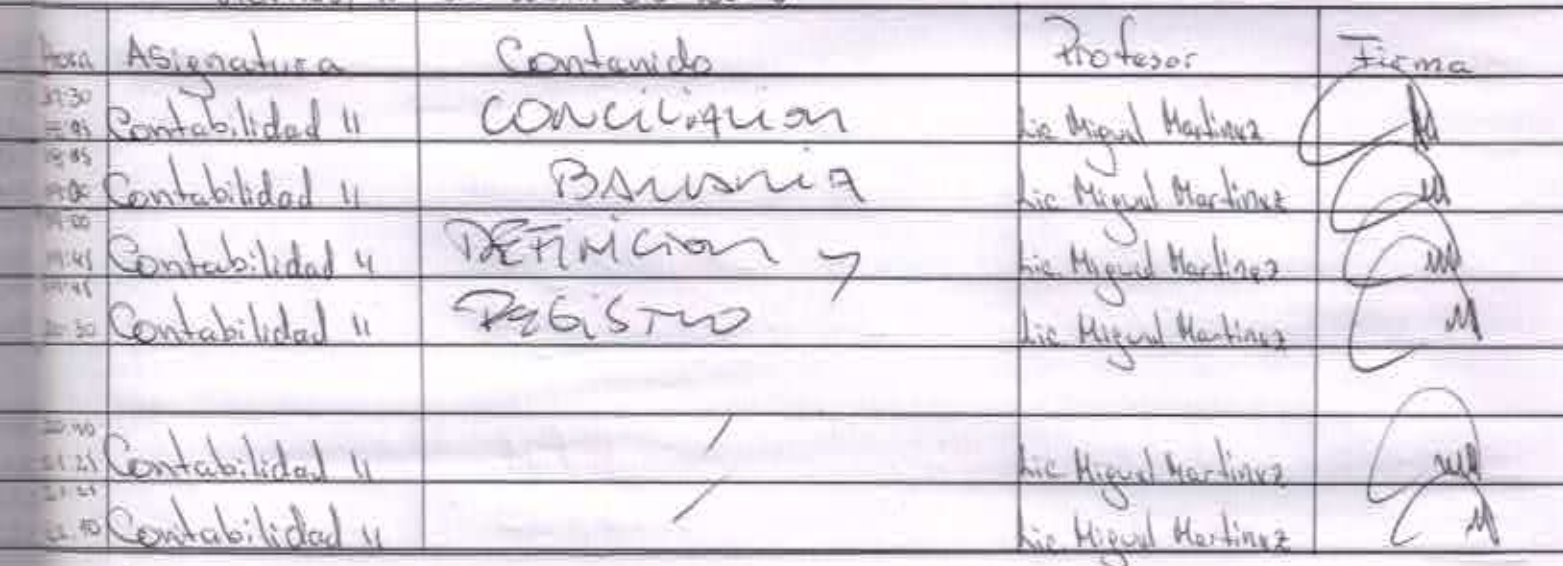 Hora Asignatura Contenido Profesor Firma
Contabilidad II CONCILIACION Lic Miguel Martinez
19:00 Contabilidad II BANCARIA Lic Miguel Martinez
19:00
19:45 Contabilidad II DEFINICION y Lic. Miguel Martinez
19:45
20:30 Contabilidad II REGISTRO Lic. Miguel Martinez
20:40
21:25 Contabilidad II / Lic. Miguel Martinez
21:25
22:10 Contabilidad II / Lic. Miguel Martinez